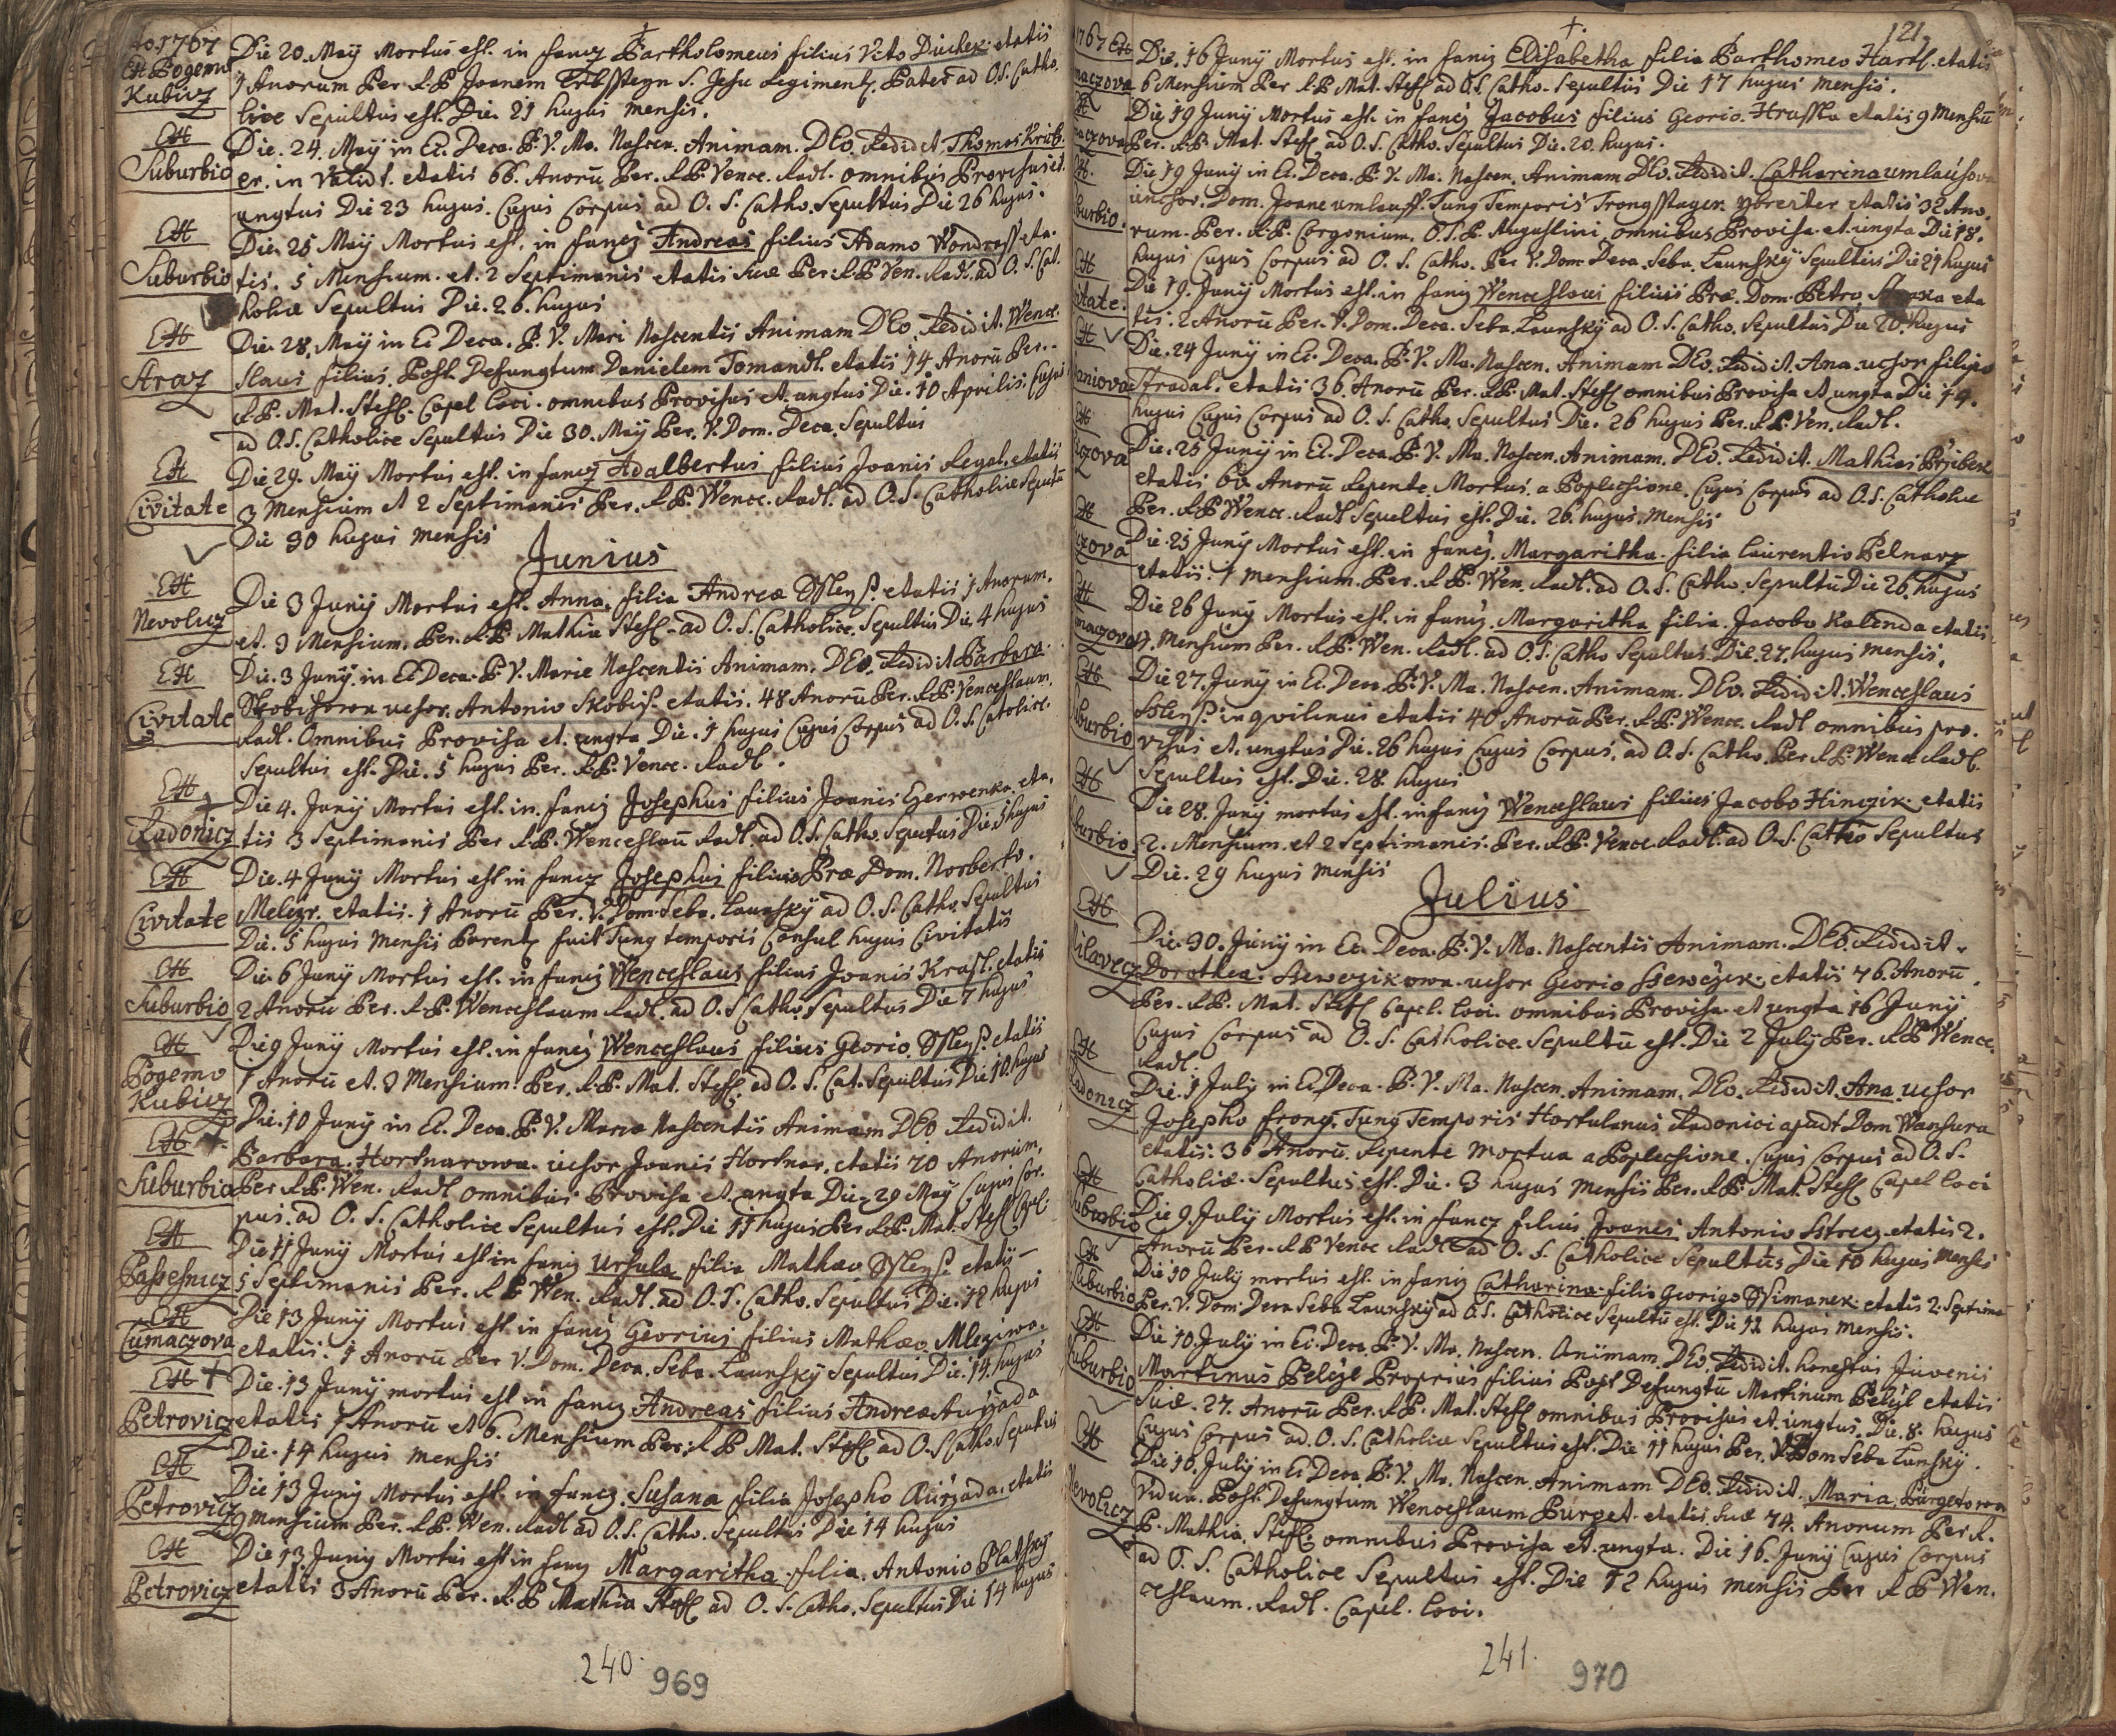 Ao. 1767
Ex Pogemo
Kubicz
Die 20. Maÿ Mortus est. in fancz Bartholomeus filius Vito Duchek etatis
1 Anorum Per R.P. Joanem S. Jesu Regiment. Pater ad O.S. Catho.
lice Sepultus est. Die. 21 hujus mensis.
Ex
Suburbio
Die. 24. Maÿ in Ec. Deca. B. V. Ma. Nascen. Animam. DEo. Redidit. Thomas
er. in valid. etatis 66. Anorū Per. R.P. Vence. Radl. omnibus Provisus et.
ungtus Die 23 hujus. Cujus Corpus ad O. S. Catho. Sepultus Die 26 hujus.
Ex
Suburbio
Die. 25 Maÿ Mortus est. in fancz Andreas filius Adamo Wondraß eta.
tis. 5 Mensium. et. 2 Septimanis etatis Suæ Per. R.P. Ven. Radl. ad O. S. Cat.
holice Sepultus Die. 26. hujus
Ex
Straz
Die. 28. Maÿ in Ec Deca. B. V. Mari Nascentis Animam DEo. Redidit. Wence.
slaus filius. Post Defungtum Danielem Tomandl. etatis 14 Anorū Per..
R.P. Mat. Stefl. Capel loci. omnibus Provisus et. ungtus Die. 10 Aprilis. Cujus
ad O.S. Catholice Sepultus Die 30. Maÿ Per. V. Dom. Deca. Sepultus
Ex
Civitate
Die 29. Maÿ Mortus est. in fancz Adalbertus filius Joanis Regal. etatis
3 Mensium et 2 Septimanis Per. R.P. Wence. Radl. ad O.S. Catholice Sepultu
Die 30 hujus mensis
Junius
Ex
Nevolicz
Die 3 Junÿ Mortus est. Anna. filia Andreæ etatis 1 Anorum.
et. 3 Mensium. Per. R.P. Mathia Stefl. ad O.S. Catholice. Sepultus Die. 4 hujus
Ex
Civitate
Die. 3 Junÿ. in Ec Deca. B. V. Marie Nascentis Animam. DEo. Redidit Barbara.
Skobisowa ucsor. Antonio Skobiß. etatis. 48 Anorū Per. R.P. Venceslaum.
Radl. Omnibus Provisa et. ungta Die. 1 hujus Cujus Corpus ad O.S. Catolice.
Sepultus est. Die. 5 hujus Per. R.P. Vence. Radl.
Ex
Radonicz
Die 4. Junÿ Mortus est. in. fancz Josephus filius Joanis Czerwenka. eta.
tis 3 Septimanis Per R.P. Wenceslaū Radl. ad O.S. Catho. Seputus Die. 5 hujus
Ex
Civitate
Die. 4 Junÿ Mortus est in fancz Josephus filius Præ Dom. Norberto.
Melczr. etatis. 1 Anorū Per. V. Dom. Seba. Launskÿ ad O.S. Catho. Sepultus
Die. 5 hujus Mensis Parentz fuit Tung temporis Consul hujus Civitatis
Ex
Suburbio
Die 6 Junÿ Mortus est. in fancz Wenceslaus filius Joanis Krasl. etatis
2 Anorū Per. R.P. Wenceslaum Radl. ad O.S Catho. Sepultus Die 7 hujus
Ex
Pogemo
Kubicz
Die 9 Junÿ Mortus est. in fancz Wenceslaus filius Georio. etatis
1 Anorū et. 3 Mensium. Per. R.P. Mat. Stefl. ad O. S. Cat. Sepultus Die 10. hujus
Ex
Suburbio
Die. 10 Junÿ in Ec. Deca. B. V. Mariæ Nascentis Animam DEo Redidit.
Barbara. Hortnarowa. ucsor Joanis Hortnar. etatis 70 Anorum.
Per R.P. Wen. Radl omnibus Provisa et. ungta Die. 29 Maÿ Cujus Cor.
pus. ad O. S. Catholice Sepultus est. Die 11 hujus Per R.P. Mat. Stefl. Cpl.
Ex
Passesnicz
Die 11 Junÿ Mortus est in fancz Ursula filia Mathæo etatis
5 Septimanis Per. R.P. Wen. Radl. ad O.S. Catho. Sepultus Die. 12 hujus
Ex
Tumaczova
Die 13 Junÿ Mortus est. in fancz Georius filius Mathæo. Mlezziwa.
etatis. 1 Anorū Per V. Dom. Deca. Seba. Launskÿ Sepultus Die. 14. hujus
Ex
Petrovicz
Die. 13 Junÿ mortus est in fancz Andreas filius Andrea
etatis 1 Anorū et 6. Mensium Per. R.P. Mat. Stefl ad O.S Catho. Seputus
Die. 14 hujus mensis
Ex
Petrovicz
Die 13 Junÿ Mortus est. in fancz. Susana filia Josepho etatis
9 mensium Per. R.P. Wen. Radl ad O.S. Catho. Sepultus Die 14 hujus
Ex
Petrovicz
Die 13 Junÿ Mortus est in fancz Margaritha. filia. Antonio Platskÿ
etatis 3 Anorū Per. R.P. Mathia Stefl ad O. S. Catho. Sepultus Die 14 hujus
240.
969
121.
1767 Ex
maczova
Die. 16 Junÿ Mortus est. in fancz Elisabetha filia Barthomeo Hartl. etatis
6 Mensium Per R.P. Mat. Stefl ad O.S. Catho. Sepultus Die 17 hujus mensis.
Ex
maczova
Die 19 Junÿ Mortus est. in fancz Jacobus filius Georio. Hruska etatis 9 Mensiū
Per. R.P. Mat. Stefl. ad O.S. Catho. Sepultus Die. 20. hujus.
Ex.
burbio.
Die 19 Junÿ in Ec. Deca. B. V. Ma. Nascen. Animam DEo. Redidit. Catharina umlaufov
ucsor. Dom. Joane umlauff. Tung Temporis etatis 32 Ano.
rum. Per. R.P. Gorgonium. O.S.P. Augustini. omnibus Provisa. et. ungta Die 18.
hujus Cujus Corpus ad O. S. Catho. Per V. Dom Deca. Seba. Launskÿ Sepultus Die 21 hujus
Ex
itate.
Die 19. Junÿ Mortus est. in fancz Wenceslaus filius Præ. Dom. Petro eta
tis. 2 Anorū Per. V. Dom. Deca. Seba. Launskÿ ad O.S. Catho. Sepultus Die 20. hujus
Ex
aniova
Die. 24 Junÿ in Ec. Deca. B. V. Ma. Nascen. Animam DEo. Redidit. Ana. ucsor filipo
Stradal. etatis 36 Anorū Per. R.P. Mat. Stefl omnibus Provisa et ungta Die 14.
hujus Cujus Corpus ad O. S. Catho. Sepultus Die. 26 hujus Per. R.P. Ven. Radl.
Ex
czova
Die. 25 Junÿ in Ec. Deca. B. V. Ma. Nascen. Animam. DEo. Redidit. Mathias Przibek
etatis Anorū Repente. Mortus. a Poplecsione. Cujus Corpus ad O.S. Catholice
Per. R.P. Wence. Radl Sepultus est. Die. 26. hujus. mensis
Ex
czova
Die. 25 Junÿ Mortus est. in fancz. Margaritha. filia Laurentio Pelnarz
etatis. 1 mensium. Per. R.P. Wen. Radl. ad O.S. Catho. Sepultū Die 26. hujus
Ex
maczova
Die 26 Junÿ Mortus est. in fancz. Margaritha filia. Jacobo Kalenda etatis
7. Mensium Per. R.P. Wen. Radl. ad O.S. Catho Sepultus. Die. 27. hujus mensis.
Ex
burbio
Die 27. Junÿ in Ec. Deca. B. V. Ma. Nascen. Animam. DEo. Redidit. Wenceslaus
inqvilinus etatis 40 Anorū Per. R.P. Wence. Radl omnibus pro.
visus et. ungtus Die. 26 hujus Cujus Corpus. ad O.S. Catho. Per R.P. Wence. Radl.
Sepultus est. Die. 28. hujus
Ex
burbio
Die 28. Junÿ mortus est. in fancz Wenceslaus filius Jacobo Hinczik. etatis
2. Mensium. et 2 Septimanis. Per. R.P. Vence. Radl. ad O.S. Catho Sepultus
Die. 29 hujus mensis
Julius
Ex
ilavecz
Die. 30. Junÿ in Ec. Deca. B. V. Ma. Nascentis Animam. DEo. Redidit.
Dorothea. Ssewczikowa. ucsor Georio Ssewczik. etatis 76. Anorū.
Per. R.P. Mat. Stefl Capel. loci. omnibus Provisa et ungta 16 Junÿ.
Cujus Corpus ad O. S. Catholice. Sepultū est. Die 2 Julÿ Per. R.P. Wence.
Radl.
Ex
adonicz
Die. 1 Julÿ in Ec. Deca. B. V. Ma. Nascen. Animam. DEo. Redidit. Ana. ucsor
Josepho Trung. Tung Temporis Hortulanus Radonici apudt Dom. Wansura
etatis. 36 Anorū. Repente mortua a Poplecsione. Cujus Corpus ad O.S.
Catholice. Sepultus est. Die. 3 hujus mensis Per. R.P. Mat. Stefl Capel loci
uburbio
Die 9. Julÿ Mortus est. in fancz filius Joanes Antonio etatis 2.
Anorū Per. R.P. Vence Radl ad O. S. Catholice Sepultus Die 10 hujus mensis
Ex
uburbio
Die 10 Julÿ mortus est. in fancz Catharina. filia Georigo Ssimanek. etatis 2. Septima
Per. V. Dom. Deca Seba Launskÿ ad O.S. Catholice Sepultū est. Die 12 hujus mensis.
Ex
uburbio
Die 10. Julÿ in Ec. Deca. B. V. Ma. Nascen. Animam. DEo. Redidit. honestus Juvenis
Martinus Pelczl Proprius filius Post Defungtū Martinum Pelczl etatis
Suæ. 27. Anorū Per. R.P. Mat. Stefl omnibus Provisus et. ungtus. Die. 8. hujus
Cujus Corpus ad. O. S. Catholice Sepultus est. Die 11 hujus Per. V. Dom Seba Lunskÿ.
Ex
Nevolicz
Die 16. Julÿ in Ec. Deca. B. V. Ma. Nascen. Animam DEo. Redidit. Maria Burgetowa
Vidua. Post. Defungtum Wenceslaum Burget. etatis Suæ 74. Anorum Per. R.
P. Mathia. Stefl. omnibus Provisa et. ungta. Die 16. Junÿ Cujus Corpus
ad O. S. Catholice Sepultus est. Die 12 hujus mensis Per R.P. Wen.
ceslaum. Radl. Capel. loci.
241.
970